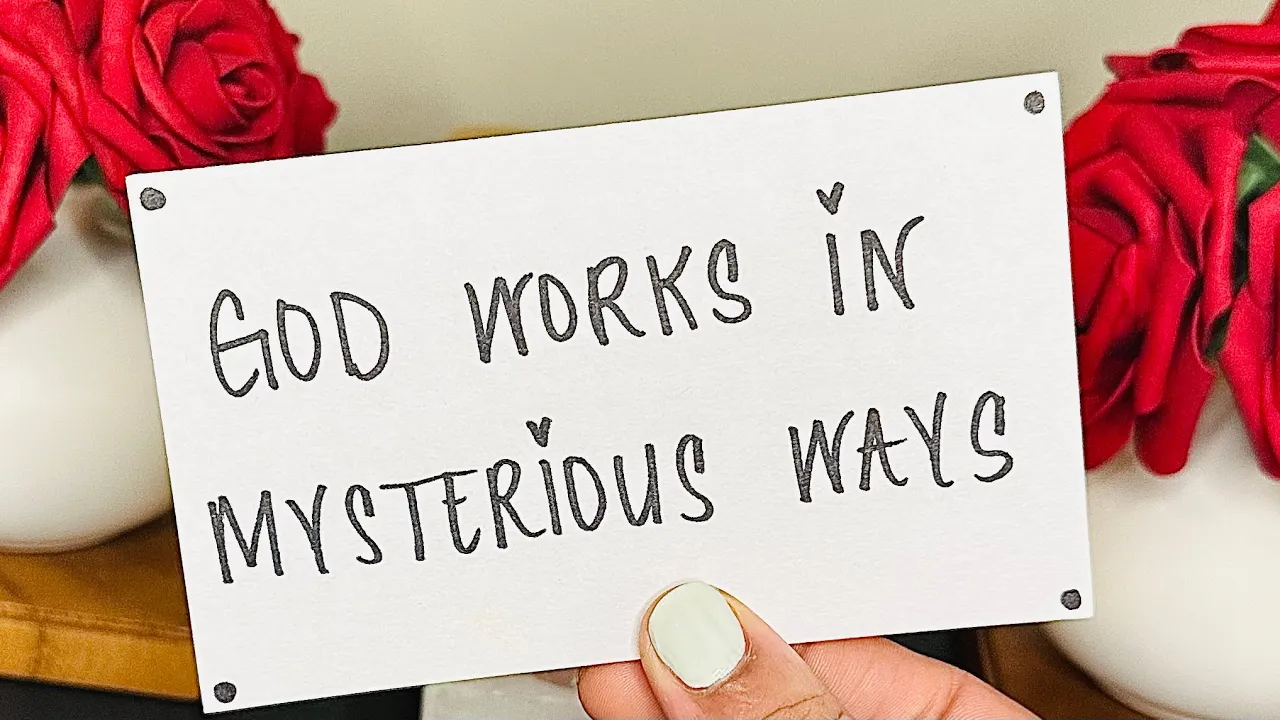 GOD WORKS IN
MYSTERIOUS WAYS